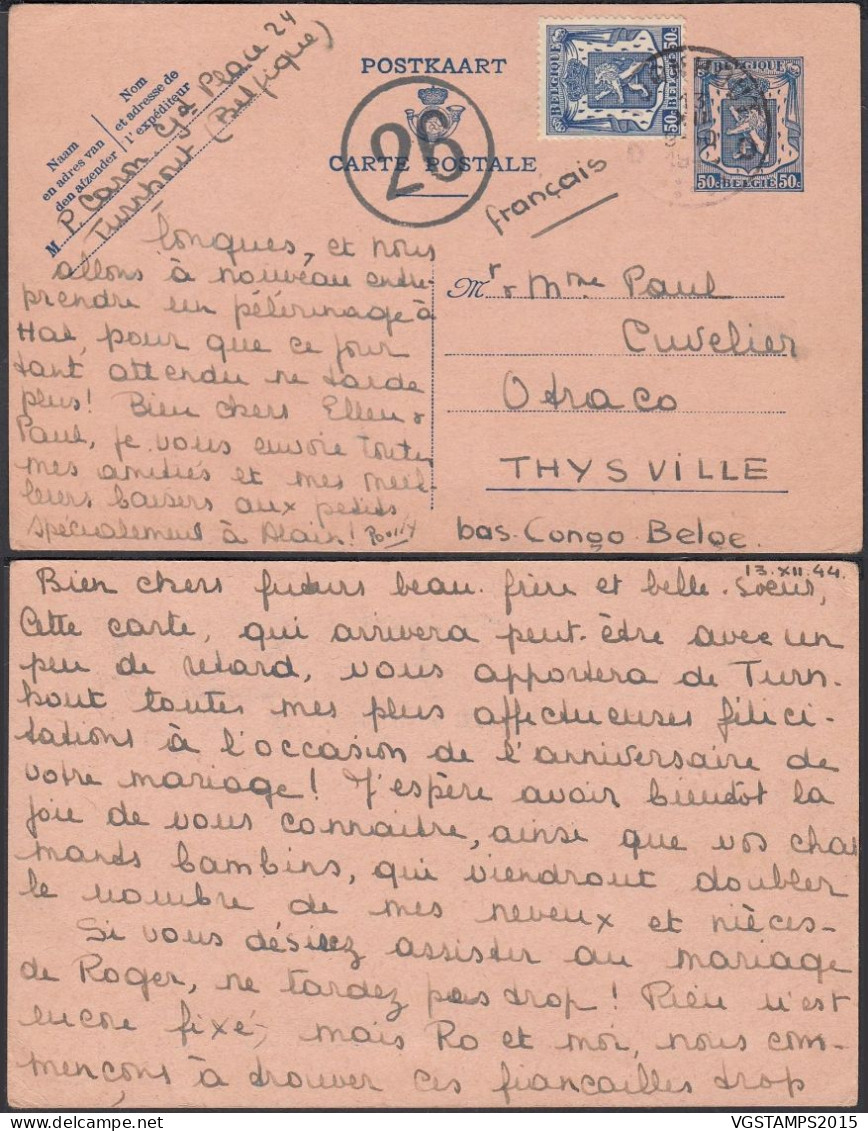 Nom
et adresse de
l'expéditeur
Naam
en adres van
den afzender
M P. Caron Gd Place 24
Turnhout (Belgique)
POSTKAART
CARTE POSTALE
26
BELGIQUE
50c BELGIE 50c
BELGIQUE
50c BELGIE 50c
français
longues, et nous
allons à nouveau entre-
prendre un pèlerinage à
Hal, pour que ce jour
tant attendu ne tarde
plus! Bien chers Ellen &
Paul, je vous envoie toutes
mes amitiés et mes meil-
leurs baisers aux petits
spécialement à Alain!
Mr & Mme Paul
Cuvelier
Otraco
THYSVILLE
bas-Congo Belge.
13.XII.44.
Bien chers futurs beau-frère et belle-Soeur,
Cette carte, qui arrivera peut-être avec un
peu de retard, vous apportera de Turn-
hout toutes mes plus affectueuses félici-
tations à l'occasion de l'anniversaire de
votre mariage! J'espère avoir bientôt la
joie de vous connaitre, ainsi que vos char
mants bambins, qui viendront doubler
le nombre de mes neveux et nièces-
Si vous désirez assister au mariage
de Roger, ne tardez pas trop! Rien n'est
encore fixé, mais Ro et moi, nous com-
mençons à trouver ces fiançailles trop
VGSTAMPS2015